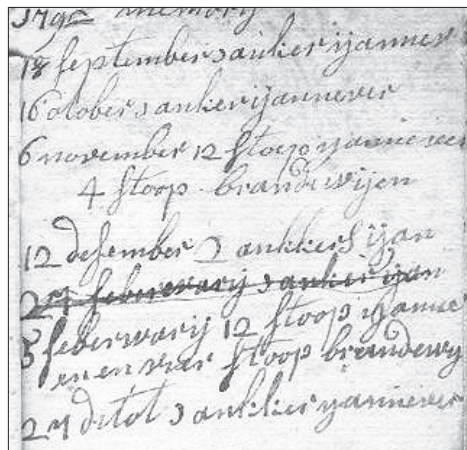 1792 memory
18 september 1 ankier ijannever
16 october 1 ankerijannever
6 november 12 stoop ijannever
4 stoop brandewijen
12 desember 2 ankkers ijan
24 feberwarij 1 ankier ijan
5 feberwarij 12 stoop ijanne
en en vier stoop brandewij
24 ditot 1 ankkier ijannever